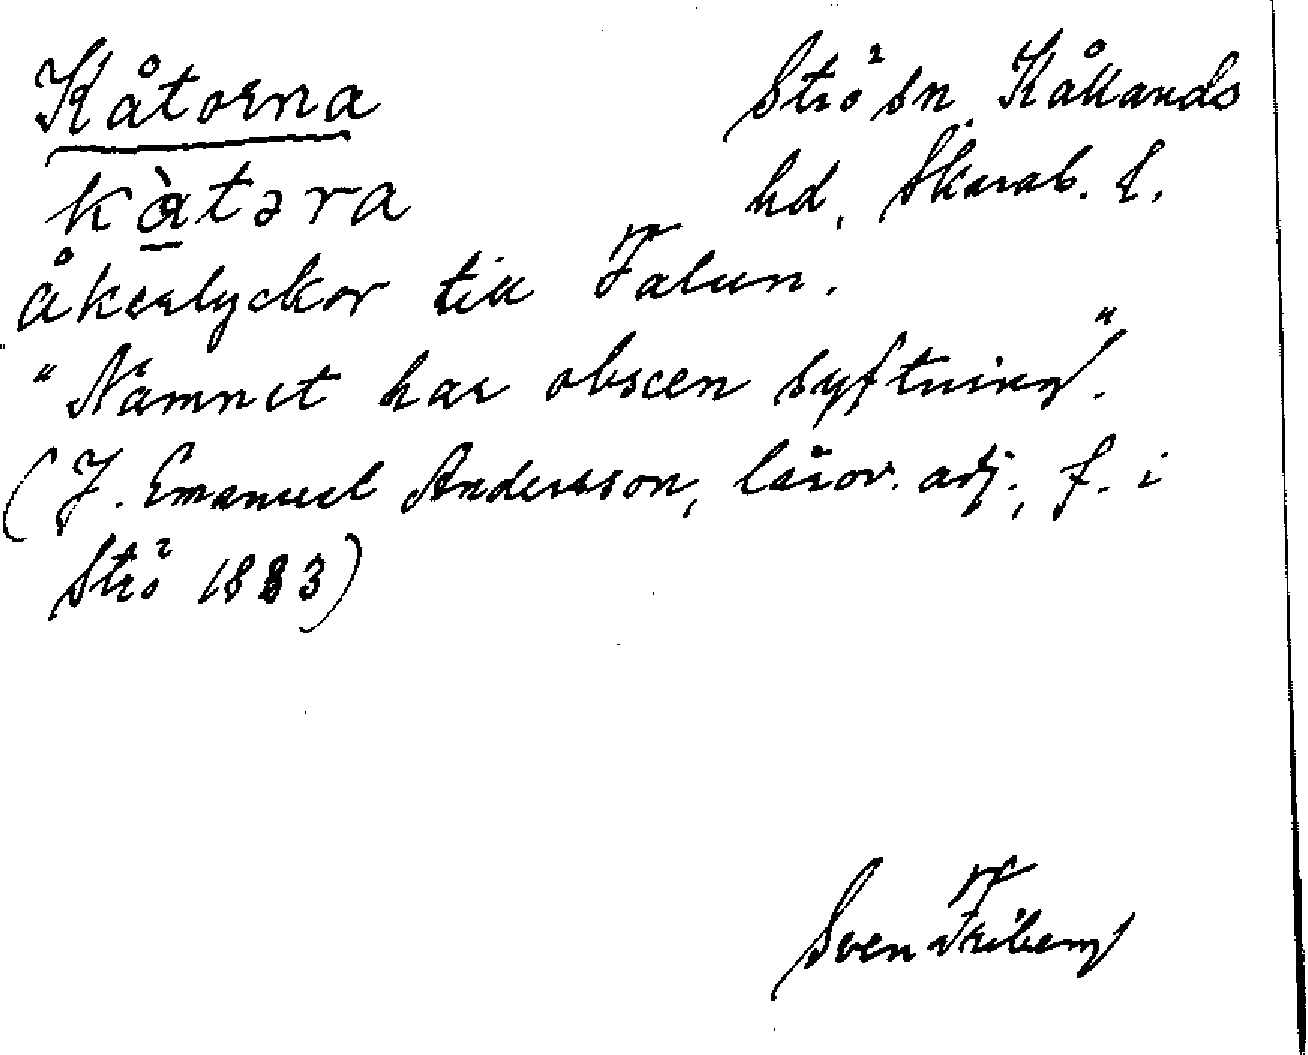 Kåtorna
Strö sn Kållands
kàtəra
hd, Skarab. l.
åkerlyckor till Falun.
"Namnet har obscen syftning".
(J. Emanuel Andersson, lärov. adj., f. i
Strö 1883)
Sven Friberg